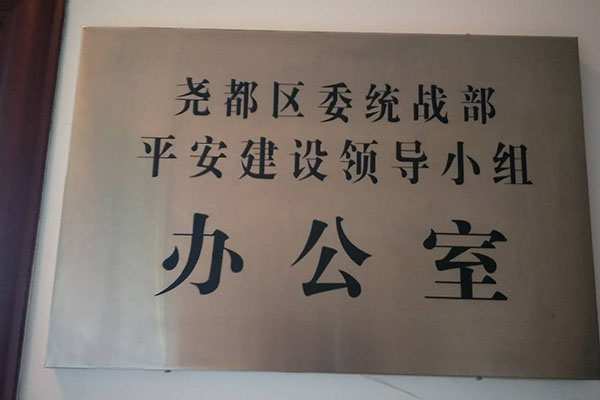 尧都区委统战部
平安建设领导小组
办公室